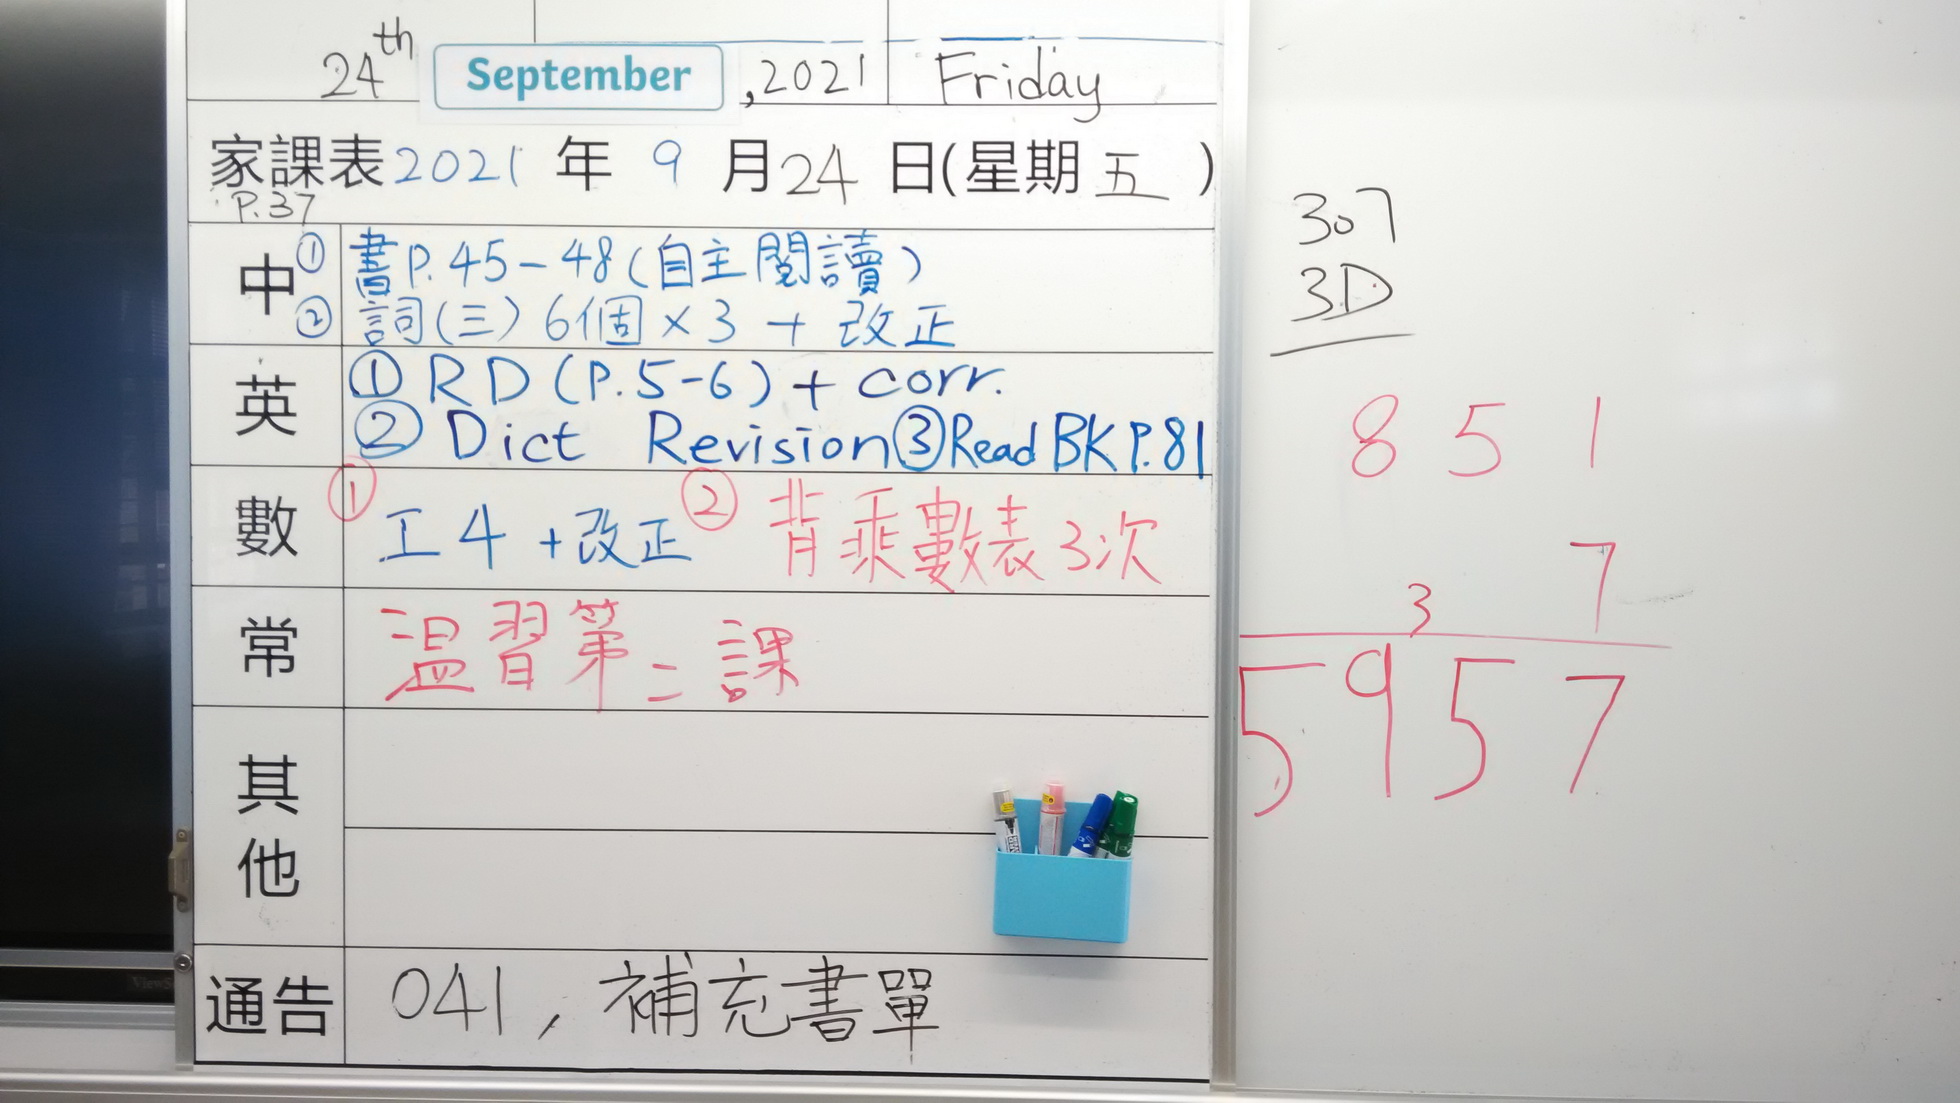 24th September, 2021 Friday
家課表 2021 年 9 月 24 日(星期 五 )
P.37
中 ① 書P.45-48(自主閱讀)
② 詞(三) 6個 × 3 + 改正
英 ① RD (P.5-6) + corr.
② Dict Revision ③ Read BK P.81
數 ① 工4 +改正 ② 背乘數表3次
常 溫習第二課
其他
通告 041, 補充書單
307
3D
8 5 1
7
3
5 9 5 7